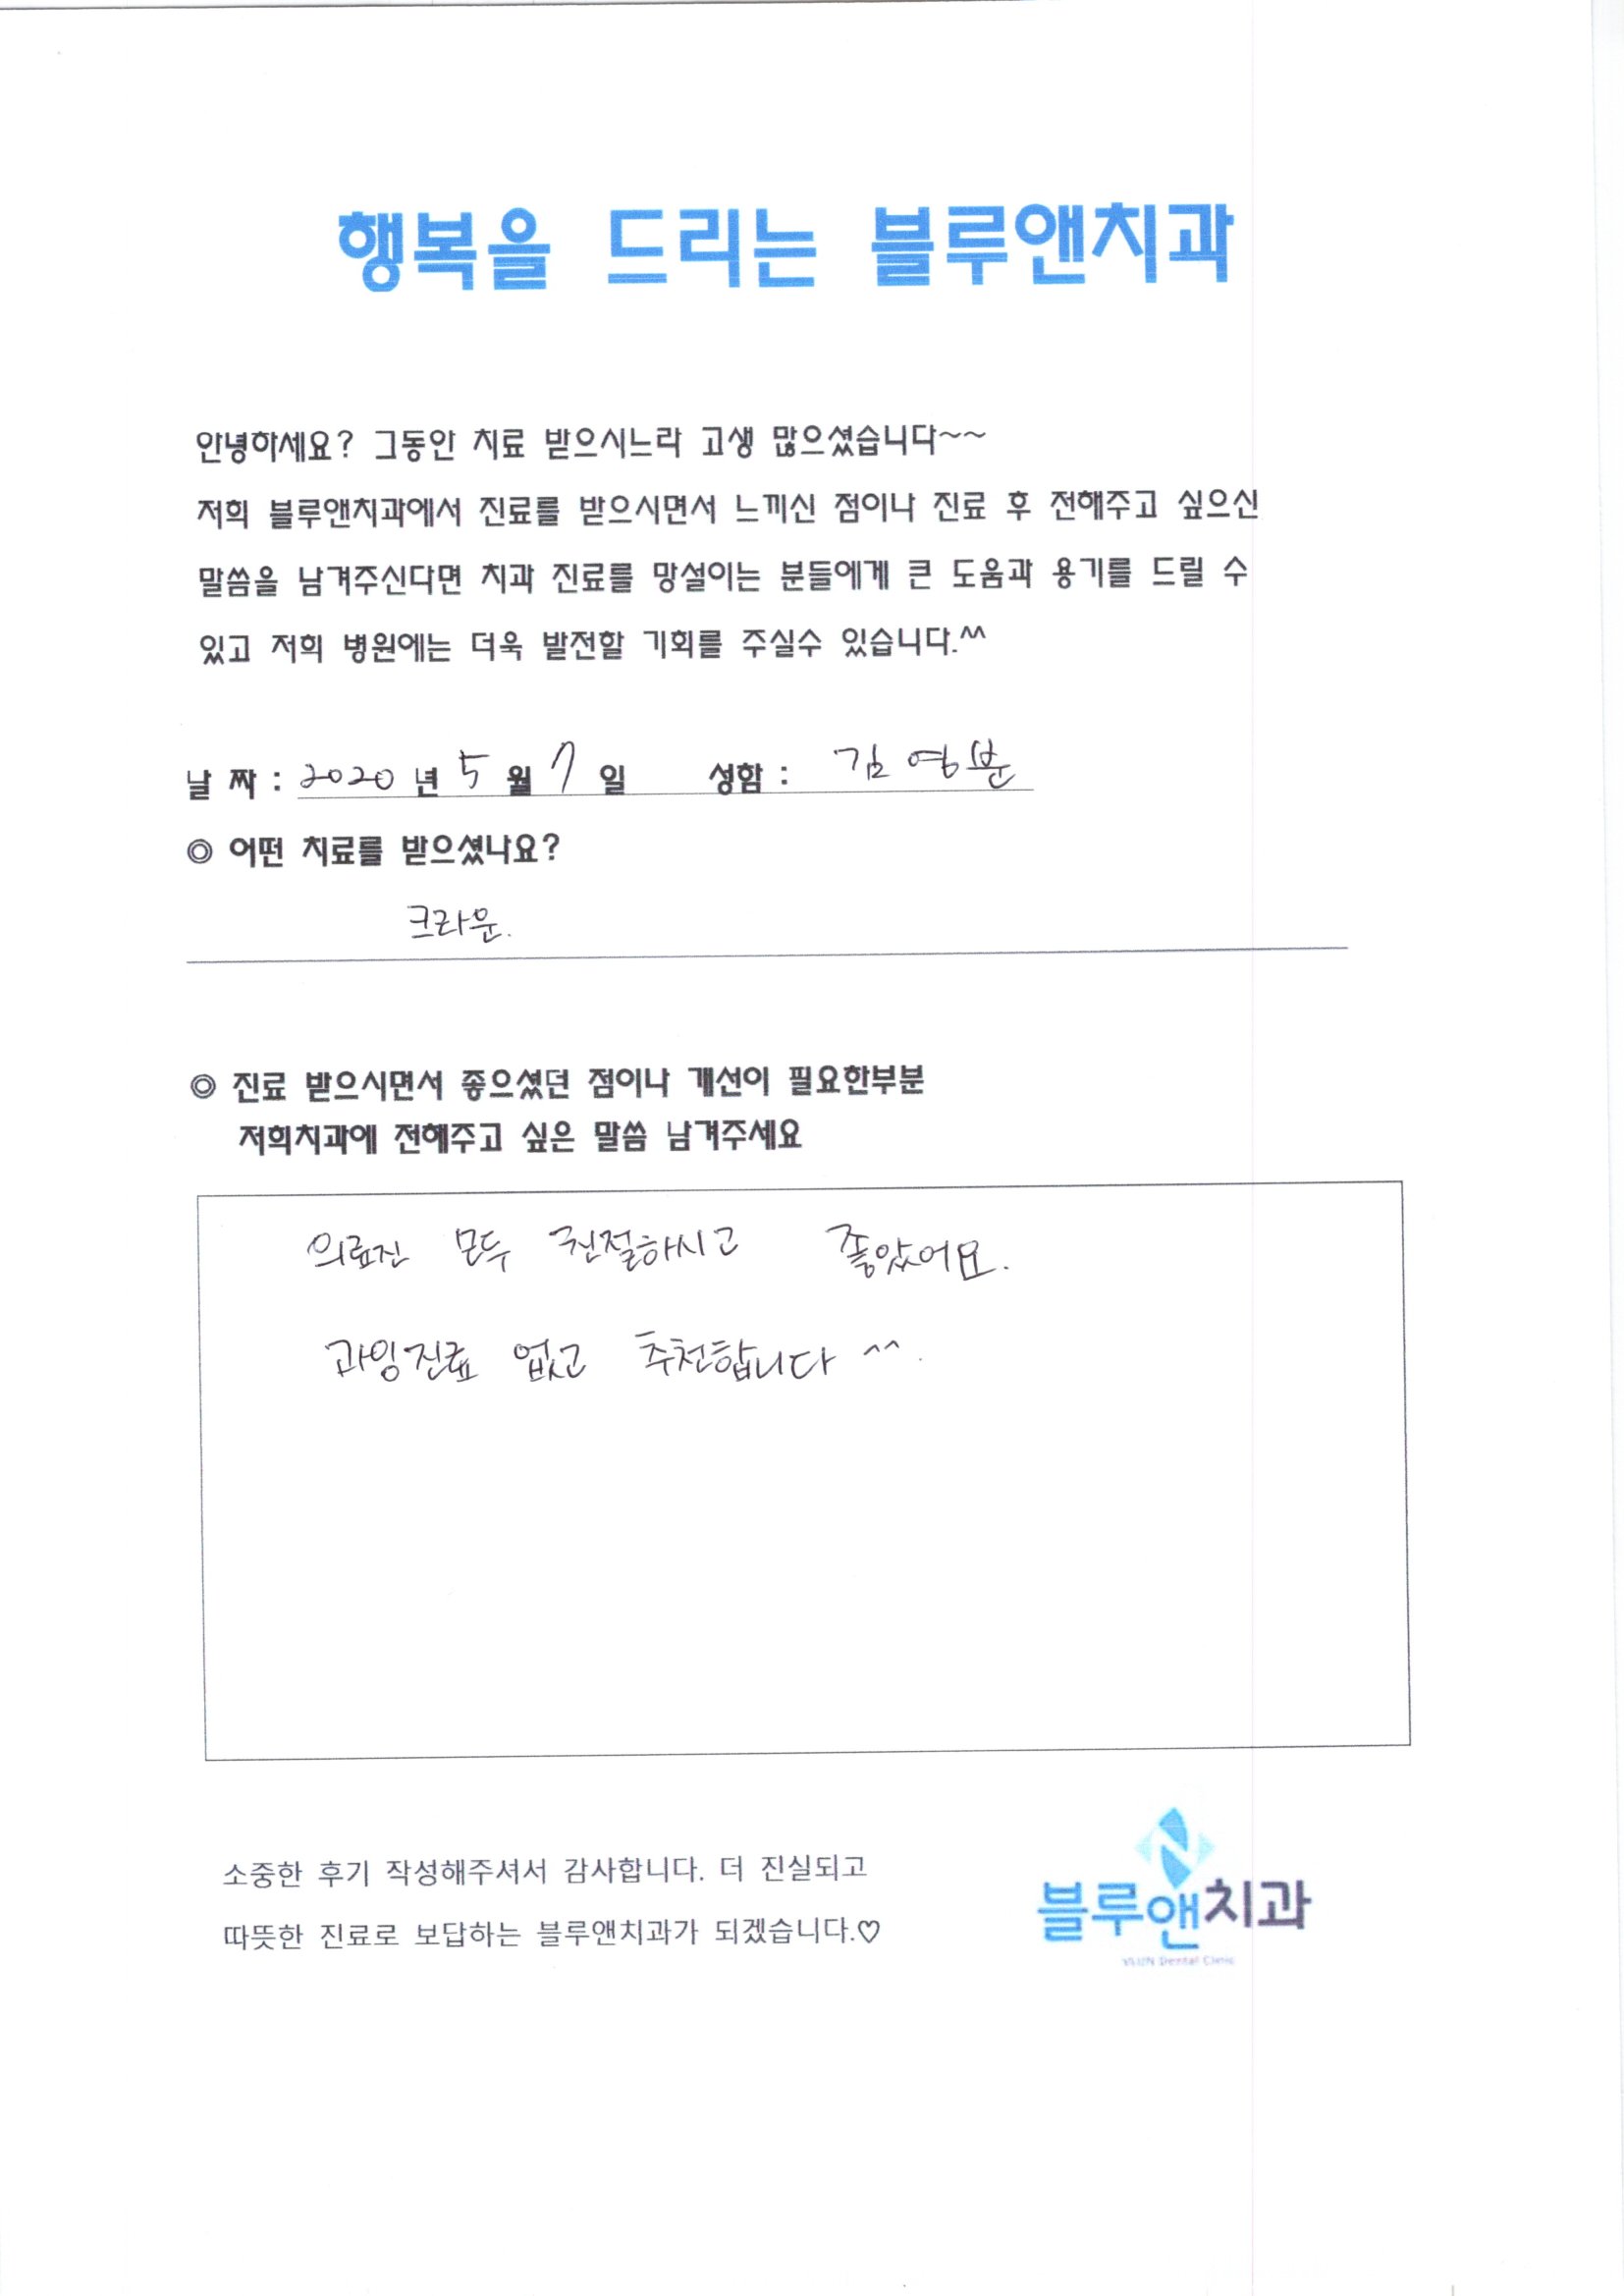 행복을 드리는 블루앤치과
안녕하세요? 그동안 치료 받으시느라 고생 많으셨습니다~~
저희 블루앤치과에서 진료를 받으시면서 느끼신 점이나 진료 후 전해주고 싶으신
말씀을 남겨주신다면 치과 진료를 망설이는 분들에게 큰 도움과 용기를 드릴 수
있고 저희 병원에는 더욱 발전할 기회를 주실수 있습니다.^^
날 짜 : 2020 년 5 월 7 일 성함 : 김영분
◎ 어떤 치료를 받으셨나요?
크라운.
◎ 진료 받으시면서 좋으셨던 점이나 개선이 필요한부분
저희치과에 전해주고 싶은 말씀 남겨주세요
의료진 모두 친절하시고 좋았어요.
과잉진료 없고 추천합니다 ^^.
소중한 후기 작성해주셔서 감사합니다. 더 진실되고
따뜻한 진료로 보답하는 블루앤치과가 되겠습니다.♡
블루앤치과
Dental Clinic